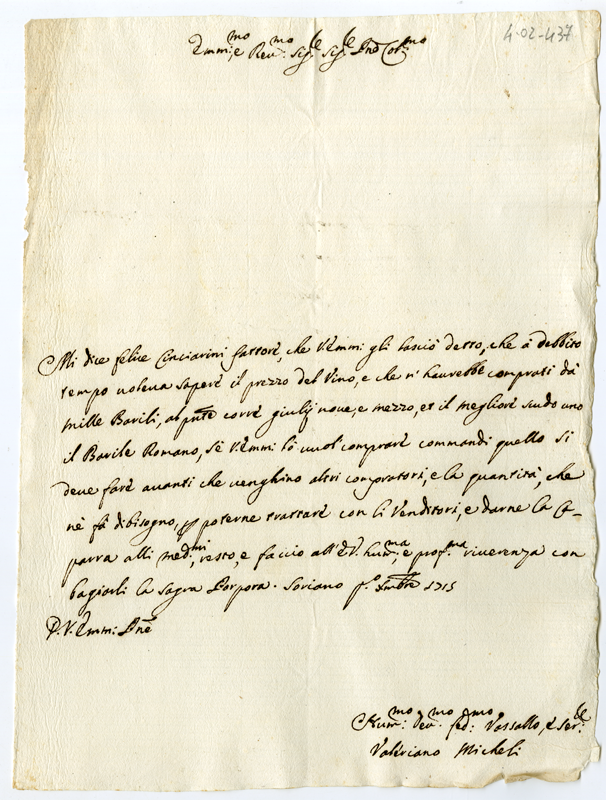 4-02-437
Emm:mo e Rev:mo Sig:re Sig:re Pne Col:mo
Mi dice felice Cinciarini fattore, che V.Emm: gli lasciò detto, che à debbito
tempo voleva sapere il prezzo del Vino, e che n'haurebbe comprati dà
mille Barili, al pnte corre giulij nove, e mezzo, et il megliore scudo uno
il Barile Romano, sè V.Emm: lò vuol comprare commandi quello si
deve fare avanti che venghino altri compratori, e la quantità, che
nè fà di bisogno, p poterne trattare con li Venditori, e darne la Ca-
parra alli med:mi, resto, e faccio all'E.V. hum:ma, e prof:ma riverenza con
bagiarli la sagra Porpora. Soriano p:o Xmbre 1715
D.V.Emm: Pne
Hum:mo Dev:mo fed:mo Vassallo, e Ser:re
Valeriano Micheli